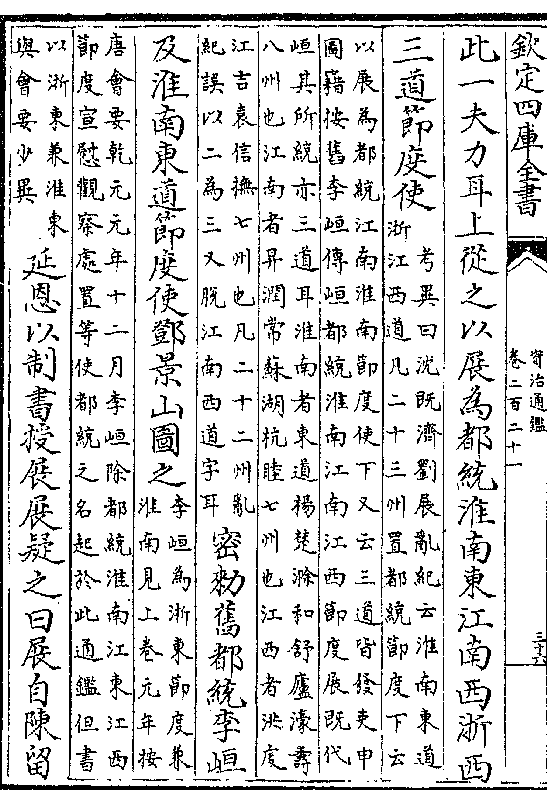 欽定四庫全書
資治通鑑
卷二百二十一
三十六
此一夫力耳上從之以展為都統淮南東江南西浙西
三道節度使
考異曰沈既濟劉展亂紀云淮南東道
浙江西道凡二十三州置都統節度下云
以展為都統江南淮南節度使下又云三道皆發吏申
圖籍按舊李峘傳峘都統淮南江南江西節度展既代
峘其所統亦三道耳淮南者東道揚楚滁和舒廬濠壽
八州也江南者昇潤常蘇湖杭睦七州也江西者洪虔
江吉袁信撫七州也凡二十二州亂
紀誤以二為三又脫江南西道字耳
密勅舊都統李峘
及淮南東道節度使鄧景山圖之
李峘為浙東節度兼
淮南見上卷元年按
唐會要乾元元年十二月李峘除都統淮南江東江西
節度宣慰觀察處置等使都統之名起於此通鑑但書
以浙東兼淮東
與會要少異
延恩以制書授展展疑之曰展自陳留